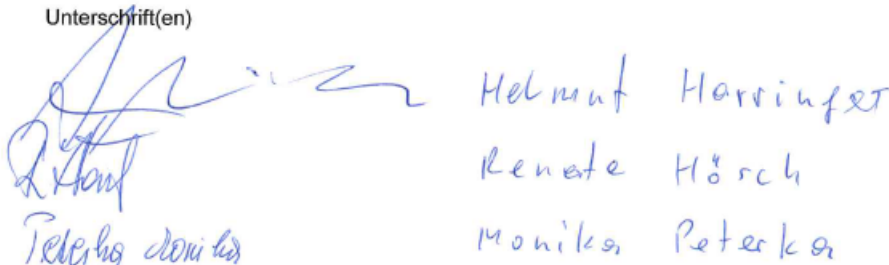 Unterschrift(en)
Helmut Harringer
Renate Hörsch
Peterka Monika Monika Peterka